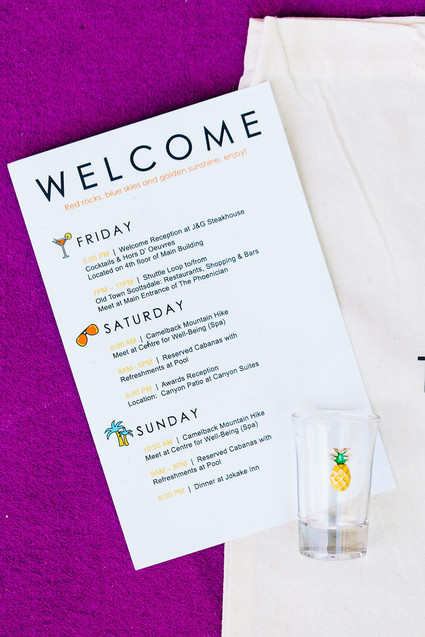 WELCOME
Red rocks, blue skies and golden sunshine, enjoy!
FRIDAY
5:00 PM | Welcome Reception at J&G Steakhouse
Cocktails & Hors D' Oeuvres
Located on 4th floor of Main Building
7PM – 11PM | Shuttle Loop to/from
Old Town Scottsdale: Restaurants, Shopping & Bars
Meet at Main Entrance of The Phoenician
SATURDAY
8:00 AM | Camelback Mountain Hike
Meet at Centre for Well-Being (Spa)
9AM– 5PM | Reserved Cabanas with
Refreshments at Pool
6:00 PM | Awards Reception
Location: Canyon Patio at Canyon Suites
SUNDAY
10:00 AM | Camelback Mountain Hike
Meet at Centre for Well-Being (Spa)
9AM – 5PM | Reserved Cabanas with
Refreshments at Pool
6:00 PM | Dinner at Jokake Inn